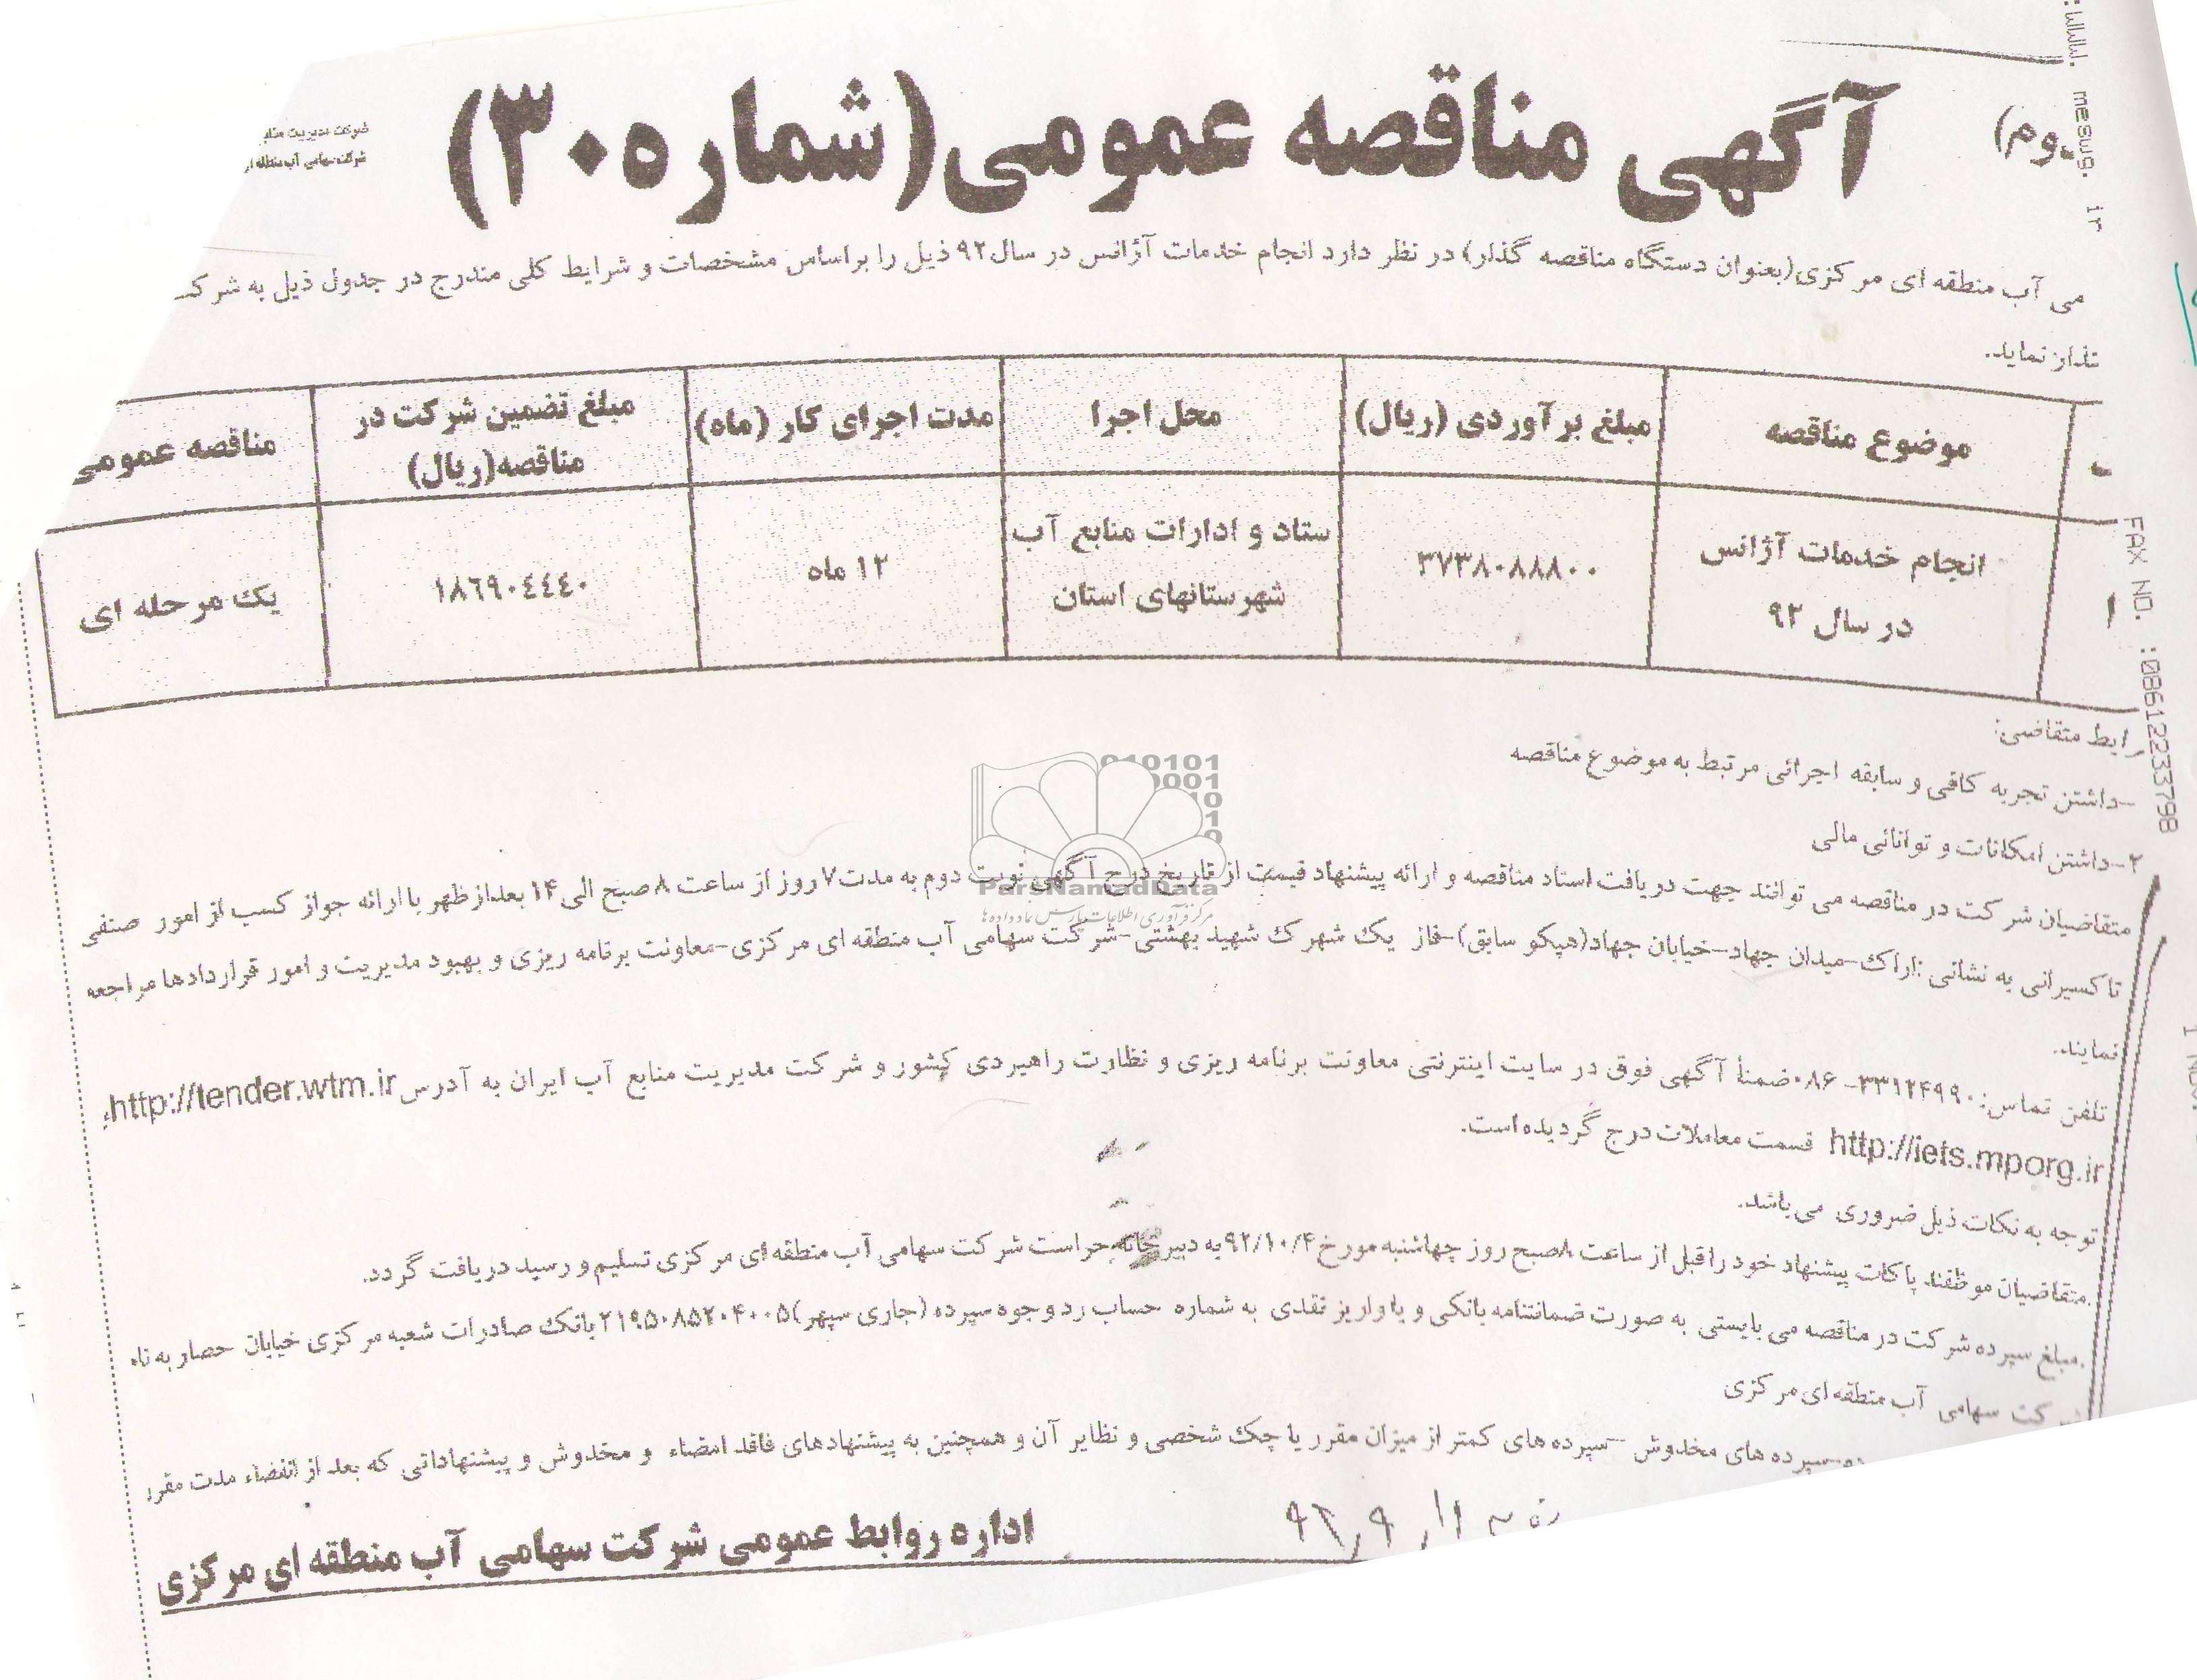 www.meswg.ir
FAX NO. :08612233798
دوم)
آگهی مناقصه عمومی(شماره ۳۰)
شرکت مدیریت منابع
شرکت سهامی آب منطقه ای
می آب منطقه ای مرکزی(بعنوان دستگاه مناقصه گذار) در نظر دارد انجام خدمات آژانس در سال ۹۲ ذیل را براساس مشخصات و شرایط کلی مندرج در جدول ذیل به شرکت
گذار نماید.
موضوع مناقصه
مبلغ برآوردی (ریال)
محل اجرا
مدت اجرای کار (ماه)
مبلغ تضمین شرکت در مناقصه(ریال)
مناقصه عمومی
۱
انجام خدمات آژانس
در سال ۹۲
۳۷۳۸۰۸۸۸۰۰
ستاد و ادارات منابع آب
شهرستانهای استان
۱۲ ماه
۱۸۶۹۰۴۴۴۰
یک مرحله ای
رایط متقاضی:
-داشتن تجربه کافی و سابقه اجرائی مرتبط به موضوع مناقصه
۲-داشتن امکانات و توانائی مالی
متقاضیان شرکت در مناقصه می توانند جهت دریافت اسناد مناقصه و ارائه پیشنهاد قیمت از تاریخ درج آگهی نوبت دوم به مدت ۷ روز از ساعت ۸ صبح الی ۱۴ بعدازظهر با ارائه جواز کسب از امور صنفی
تاکسیرانی به نشانی :اراک-میدان جهاد-خیابان جهاد(هپکو سابق)-فاز یک شهرک شهید بهشتی-شرکت سهامی آب منطقه ای مرکزی-معاونت برنامه ریزی و بهبود مدیریت و امور قراردادها مراجعه
نمایند.
تلفن تماس: ۳۳۱۲۴۹۹۰-۰۸۶ ضمناً آگهی فوق در سایت اینترنتی معاونت برنامه ریزی و نظارت راهبردی کشور و شرکت مدیریت منابع آب ایران به آدرس http://tender.wtm.ir،
http://iets.mporg.ir قسمت معاملات درج گردیده است.
توجه به نکات ذیل ضروری می باشد.
.متقاضیان موظفند پاکات پیشنهاد خود را قبل از ساعت ۸ صبح روز چهاشنبه مورخ ۹۲/۱۰/۴ به دبیرخانه حراست شرکت سهامی آب منطقه ای مرکزی تسلیم و رسید دریافت گردد.
.مبلغ سپرده شرکت در مناقصه می بایستی به صورت ضمانتنامه بانکی و یا واریز نقدی به شماره حساب رد وجوه سپرده (جاری سپهر)۲۱۹۵۰۸۵۲۰۴۰۰۵ بانک صادرات شعبه مرکزی خیابان حصار به نام
شرکت سهامی آب منطقه ای مرکزی
سپرده های مخدوش -سپرده های کمتر از میزان مقرر یا چک شخصی و نظایر آن و همچنین به پیشنهادهای فاقد امضاء و مخدوش و پیشنهاداتی که بعد از انقضاء مدت مقرر
۹۲,۹,۱۱
اداره روابط عمومی شرکت سهامی آب منطقه ای مرکزی
010101
ParsNamadData
مرکز فرآوری اطلاعات پارس نماد داده ها